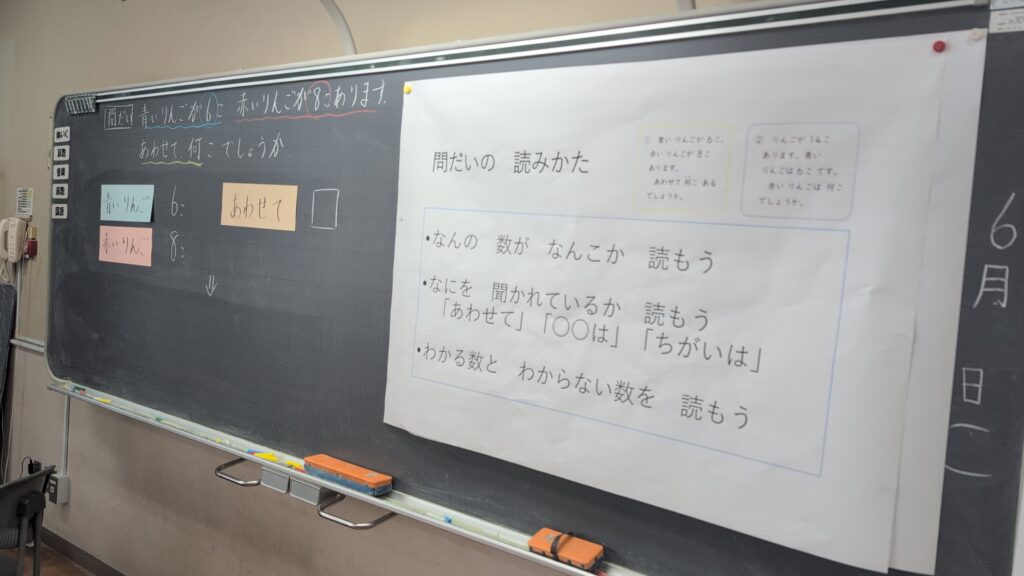 問だい 青いりんごが6こ 赤いりんごが8こあります。
あわせて何こでしょうか
青いりんご 6こ
赤いりんご 8こ
あわせて
問だいの 読みかた
① 青い りんごが 6こ、
赤い りんごが 8こ
あります。
あわせて 何こ ある
でしょうか。
② りんごが 14こ
あります。青い
りんごは 6こ です。
赤い りんごは 何こ
でしょうか。
•なんの 数が なんこか 読もう
•なにを 聞かれているか 読もう
「あわせて」「〇〇は」「ちがいは」
•わかる数と わからない数を 読もう
6月
日